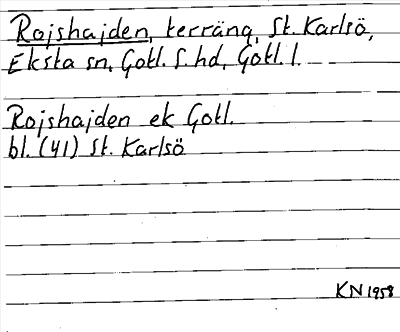 Rojshajden, terräng, St. Karlsö,
Eksta sn, Gotl. S. hd, Gotl. l.
Rojshajden ek Gotl.
bl. (41) St. Karlsö
KN 1958